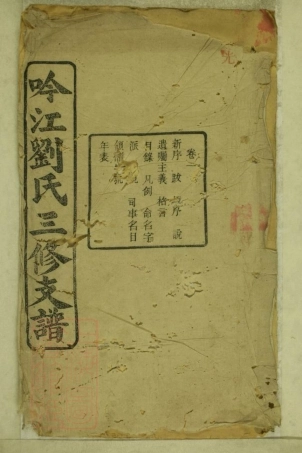 吟江劉氏三修支譜
卷一
新序 跋 序 說
遺囑主義 格言
目錄 凡例 命名字
派 司事名目
領譜字號
年表